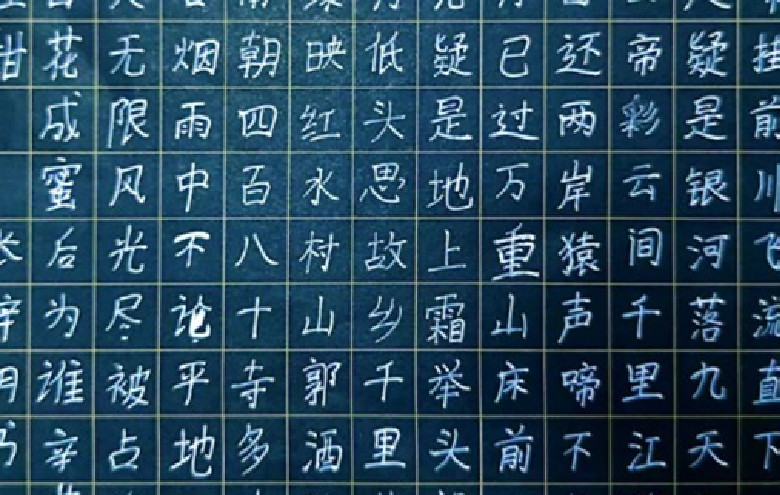 挂前川飞流直下
疑是银河落九天
帝彩云间千里江
还两岸猿声啼不
已过万重山床前
疑是地上霜举头
低头思故乡千里
映红水村山郭酒
朝四百八十寺多
烟雨中不论平地
无限风光尽被占
花成蜜后为谁辛
甜